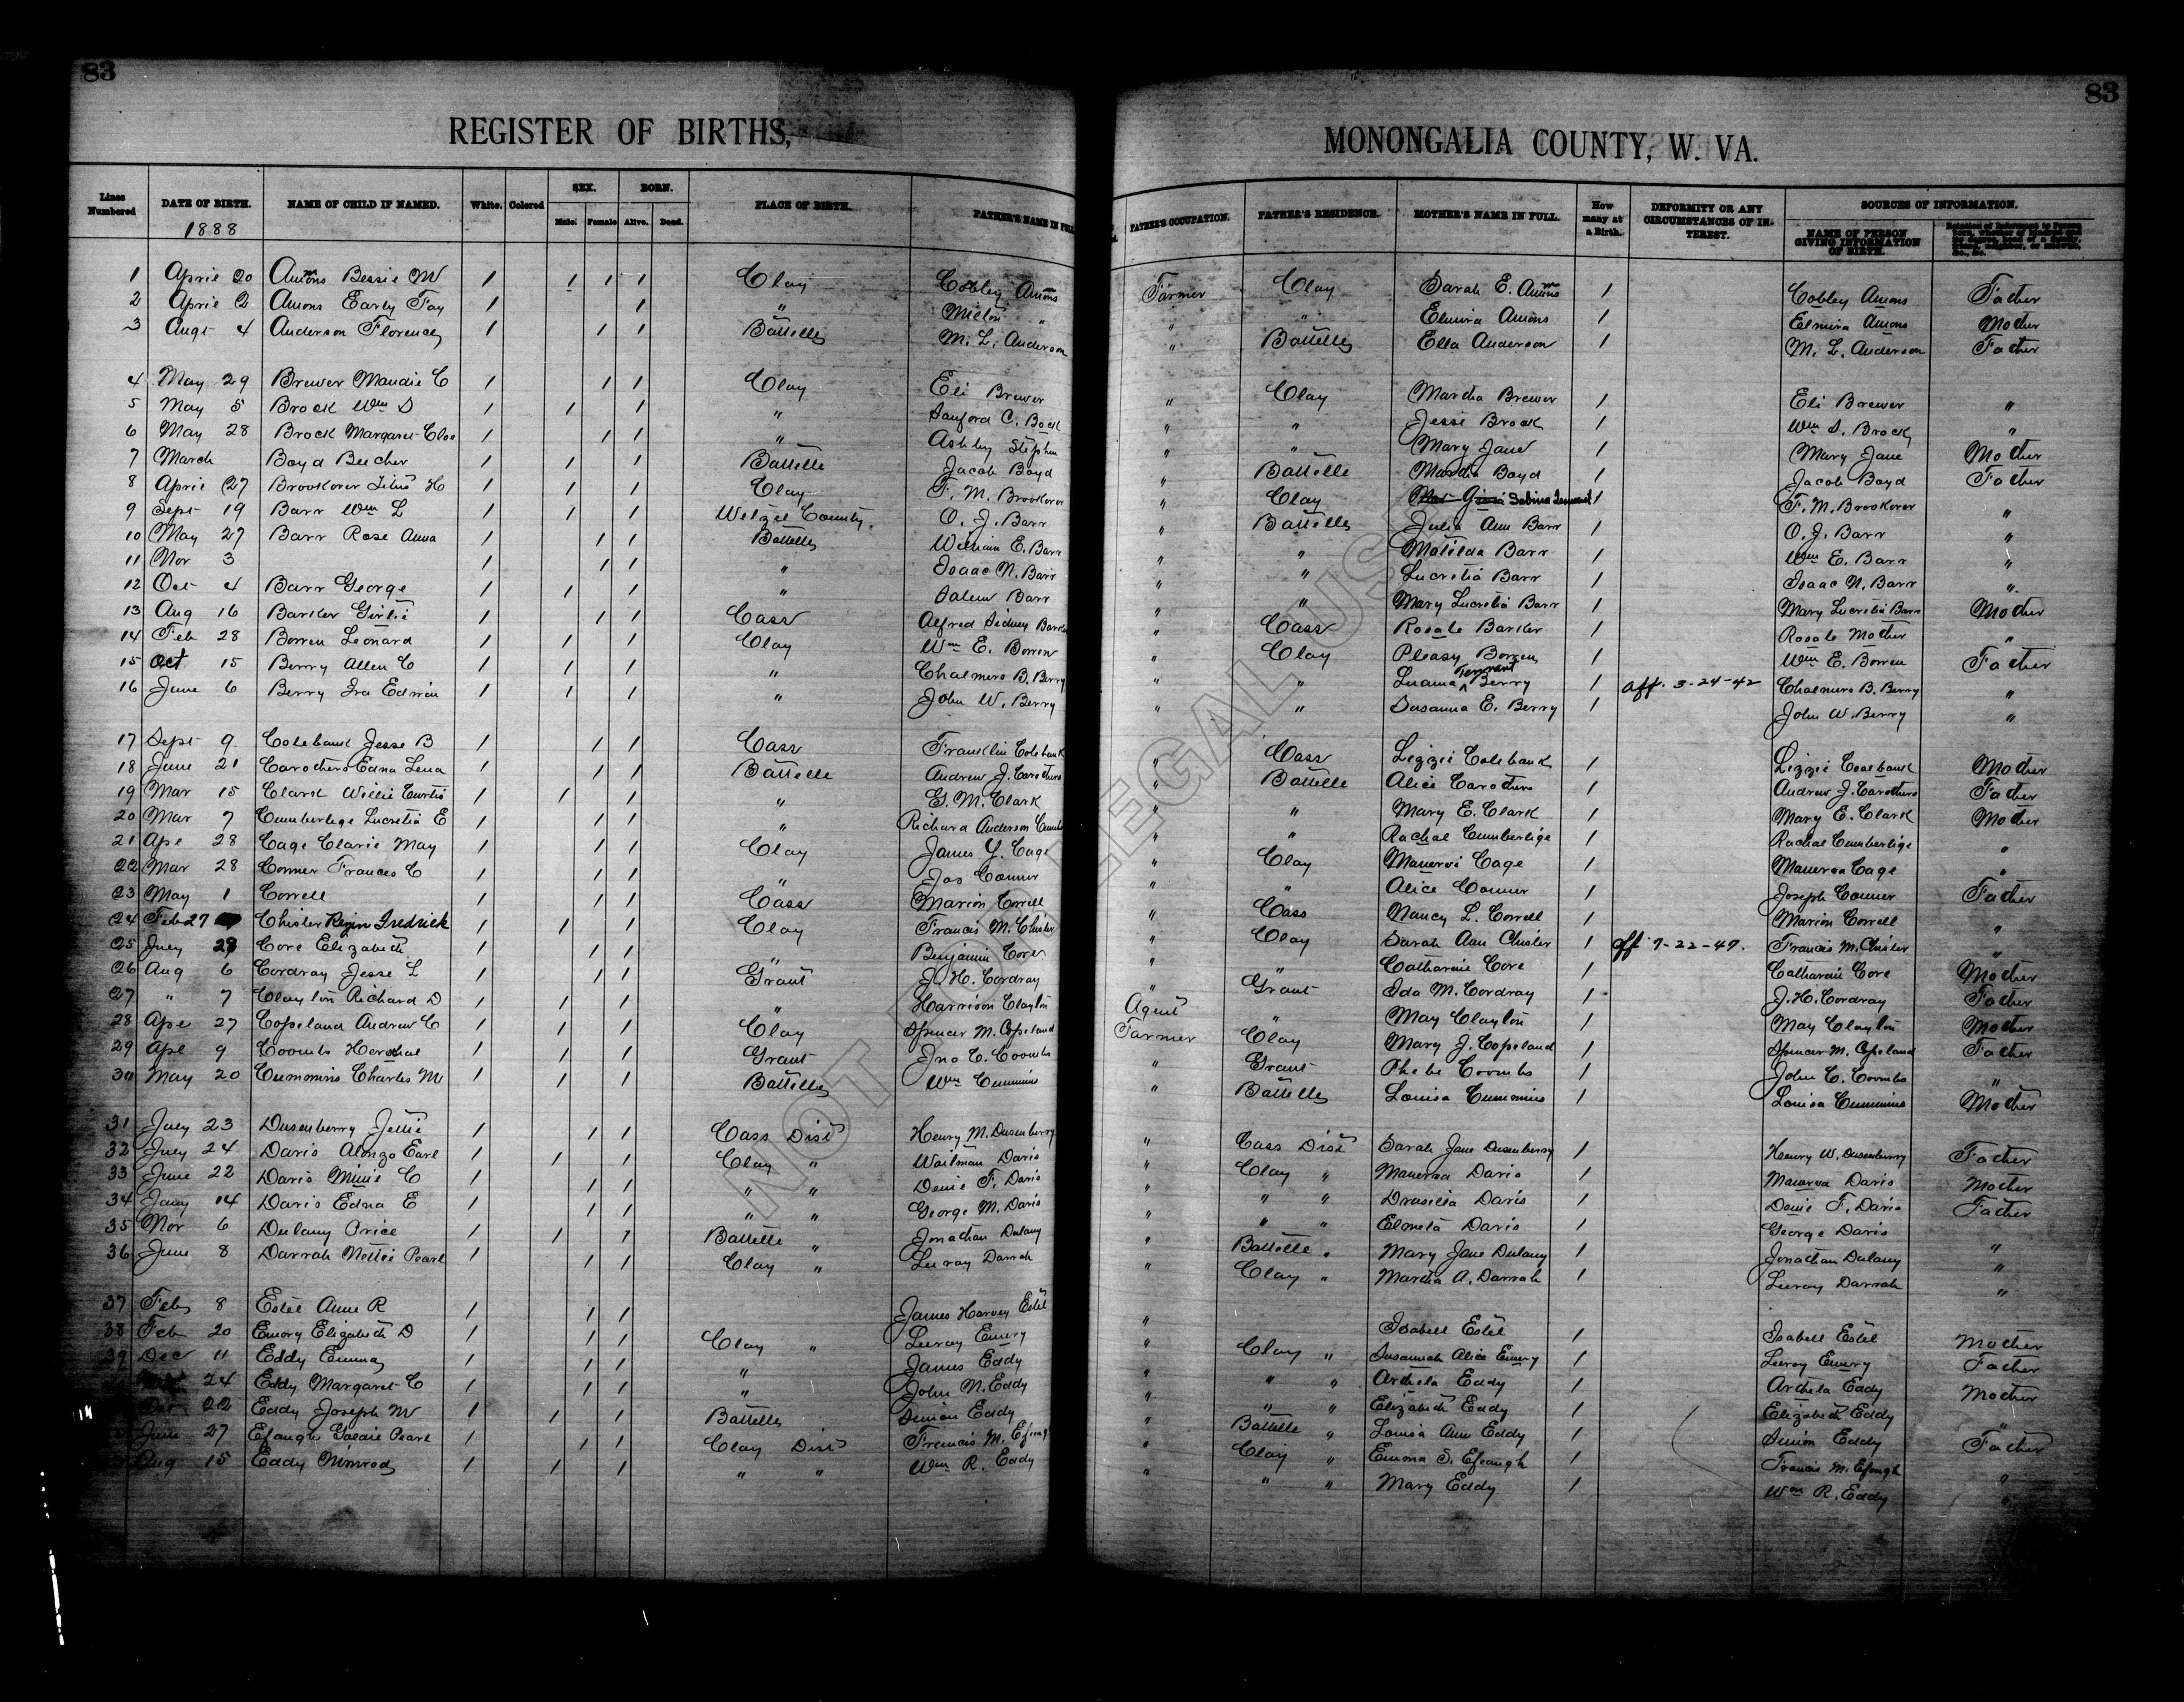 83
83
REGISTER OF BIRTHS,
MONONGALIA COUNTY, W. VA.
Lines Numbered DATE OF BIRTH. NAME OF CHILD IF NAMED. White. Colored SEX. Male. Female BORN. Alive. Dead. PLACE OF BIRTH. FATHER'S NAME IN FULL FATHER'S OCCUPATION. FATHER'S RESIDENCE. MOTHER'S NAME IN FULL. How many at a Birth. DEFORMITY OR ANY CIRCUMSTANCES OF INTEREST. SOURCES OF INFORMATION. NAME OF PERSON GIVING INFORMATION OF BIRTH.
1888
1 April 20 Amons Bessie M 1 1 1 1 Clay Cobley Amons Farmer Clay Sarah E. Amons 1 Cobley Amons Father
2 April 2 Amons Early Fay 1 1 " Milton " " " Elmira Amons 1 Elmira Amons Mother
3 Augt 4 Anderson Florence 1 1 1 Battelle M. L. Anderson " Battelle Ella Anderson 1 M. L. Anderson Father
4 May 29 Brewer Maudie C 1 1 1 Clay Eli Brewer " Clay Martha Brewer 1 Eli Brewer "
5 May 5 Brock Wm S 1 1 1 " Sanford C. Bock " " Jesse Brock 1 Wm S. Brock "
6 May 28 Brock Margaret Cloe 1 1 1 " Ashby Stephen " " Mary Jane 1 Mary Jane Mother
7 March Boyd Beecher 1 1 1 Battelle Jacob Boyd " Battelle Martha Boyd 1 Jacob Boyd Father
8 April 27 Brookover Titus H 1 1 1 Clay F. M. Brookover " Clay Sabina Tennant 1 F. M. Brookover "
9 Sept 19 Barr Wm L 1 1 1 Wetzel County. O. J. Barr " Battelle Julia Ann Barr 1 O. J. Barr "
10 May 27 Barr Rose Anna 1 1 1 Battelle William E. Barr " " Matilda Barr 1 Wm E. Barr "
11 Mor 3 1 1 1 " Isaac N. Barr " " Lucretia Barr 1 Isaac N. Barr "
12 Oct 4 Barr George 1 1 1 " Salem Barr " " Mary Lucretia Barr 1 Mary Lucretia Barr Mother
13 Aug 16 Barker Girlie 1 1 1 Cass Alfred Sidney Barker " Cass Rosale Barker 1 Rosale Mother "
14 Feb 28 Borren Leonard 1 1 1 Clay Wm E. Borren " Clay Pleasy Borren 1 Wm E. Borren Father
15 Oct 15 Berry Allen C 1 1 1 " Chalmers B. Berry " " Luama Tennant Berry 1 aff. 3-24-42 Chalmers B. Berry "
16 June 6 Berry Ira Edwin 1 1 1 " John W. Berry " " Susanna E. Berry 1 John W. Berry "
17 Sept 9 Colebank Jesse B 1 1 1 Cass Franklin Colebank " Cass Lizzie Colebank 1 Lizzie Coalbank Mother
18 June 21 Carothers Edna Lena 1 1 1 Battelle Andrew J. Carothers " Battelle Alice Carothers 1 Andrew J. Carothers Father
19 Mar 15 Clark Willie Curtis 1 1 1 " G. M. Clark " " Mary E. Clark 1 Mary E. Clark Mother
20 Mar 7 Cumberlige Lucretia E 1 1 1 " Richard Anderson " " Rachal Cumberlige 1 Rachal Cumberlige "
21 Ape 28 Cage Clarie May 1 1 1 Clay James Y. Cage " Clay Manervi Cage 1 Manerva Cage "
22 Mar 28 Conner Frances C 1 1 1 " Jas Conner " " Alice Conner 1 Joseph Conner Father
23 May 1 Correll 1 1 1 Cass Marion Correll " Cass Nancy L. Correll 1 Marion Correll "
24 Feb 27 Chisler Regin Fredrick 1 1 1 Clay Francis M. Chisler " Clay Sarah Ann Chisler 1 aff 7-22-47. Francis M. Chisler "
25 July 28 Core Elizabeth 1 1 1 " Benjamin Core " " Catharine Core 1 Catharine Core Mother
26 Aug 6 Cordray Jesse L 1 1 1 Grant J. H. Cordray " Grant Ida M. Cordray 1 J. H. Cordray Father
27 " 7 Clayton Richard D 1 1 1 " Harrison Clayton Agent " May Clayton 1 May Clayton Mother
28 Ape 27 Copeland Andrew C 1 1 1 Clay Spencer M. Copeland Farmer Clay Mary J. Copeland 1 Spencer M. Copeland Father
29 Ape 9 Coombs Hershal 1 1 1 Grant Jno C. Coombs " Grant Phebe Coombs 1 John C. Coombs "
30 May 20 Cummins Charles M 1 1 1 Battelle Wm Cummins " Battelle Louisa Cummins 1 Louisa Cummins Mother
31 July 23 Dusenberry Jettie 1 1 1 Cass Dist Henry M. Dusenberry " Cass Dist Sarah Jane Dusenberry 1 Henry W. Dusenberry Father
32 July 24 Davis Alonzo Earl 1 1 1 Clay " Waitman Davis " Clay " Manerva Davis 1 Manerva Davis Mother
33 June 22 Davis Minie C 1 1 1 " " Denie F. Davis " " " Drusilia Davis 1 Denie F. Davis Father
34 Jany 14 Davis Edna E 1 1 1 " " George M. Davis " " " Elmeta Davis 1 George Davis "
35 Mor 6 Dulany Price 1 1 1 Battelle " Jonathan Dulany " Battelle " Mary Jane Dulany 1 Jonathan Dulany "
36 June 8 Darrah Nettie Pearl 1 1 1 Clay " Leeroy Darrah " Clay " Martha A. Darrah 1 Leeroy Darrah "
37 Feb 8 Estel Anne R 1 1 1 James Harvey Estel " Isabell Estel 1 Isabell Estel Mother
38 Feb 20 Emory Elizabeth D 1 1 1 Clay " Leeroy Emery " Clay " Susannah Alice Emery 1 Leeroy Emery Father
39 Dec 11 Eddy Emma 1 1 1 " James Eddy " " " Archela Eddy 1 Archela Eddy Mother
24 Eddy Margaret C 1 1 1 " John N. Eddy " " " Elizabeth Eddy 1 Elizabeth Eddy "
Oct 22 Eddy Joseph M 1 1 1 Battelle Simion Eddy " Battelle " Louisa Ann Eddy 1 Simion Eddy Father
June 27 Efaugh Goldie Pearl 1 1 1 Clay Dist Francis M. " Clay " Emma S. Efaugh 1 Francis M. Efaugh "
Aug 15 Eddy Nimrod 1 1 1 " " Wm R. Eddy " " " Mary Eddy 1 Wm R. Eddy "
14
NOT FOR LEGAL USE